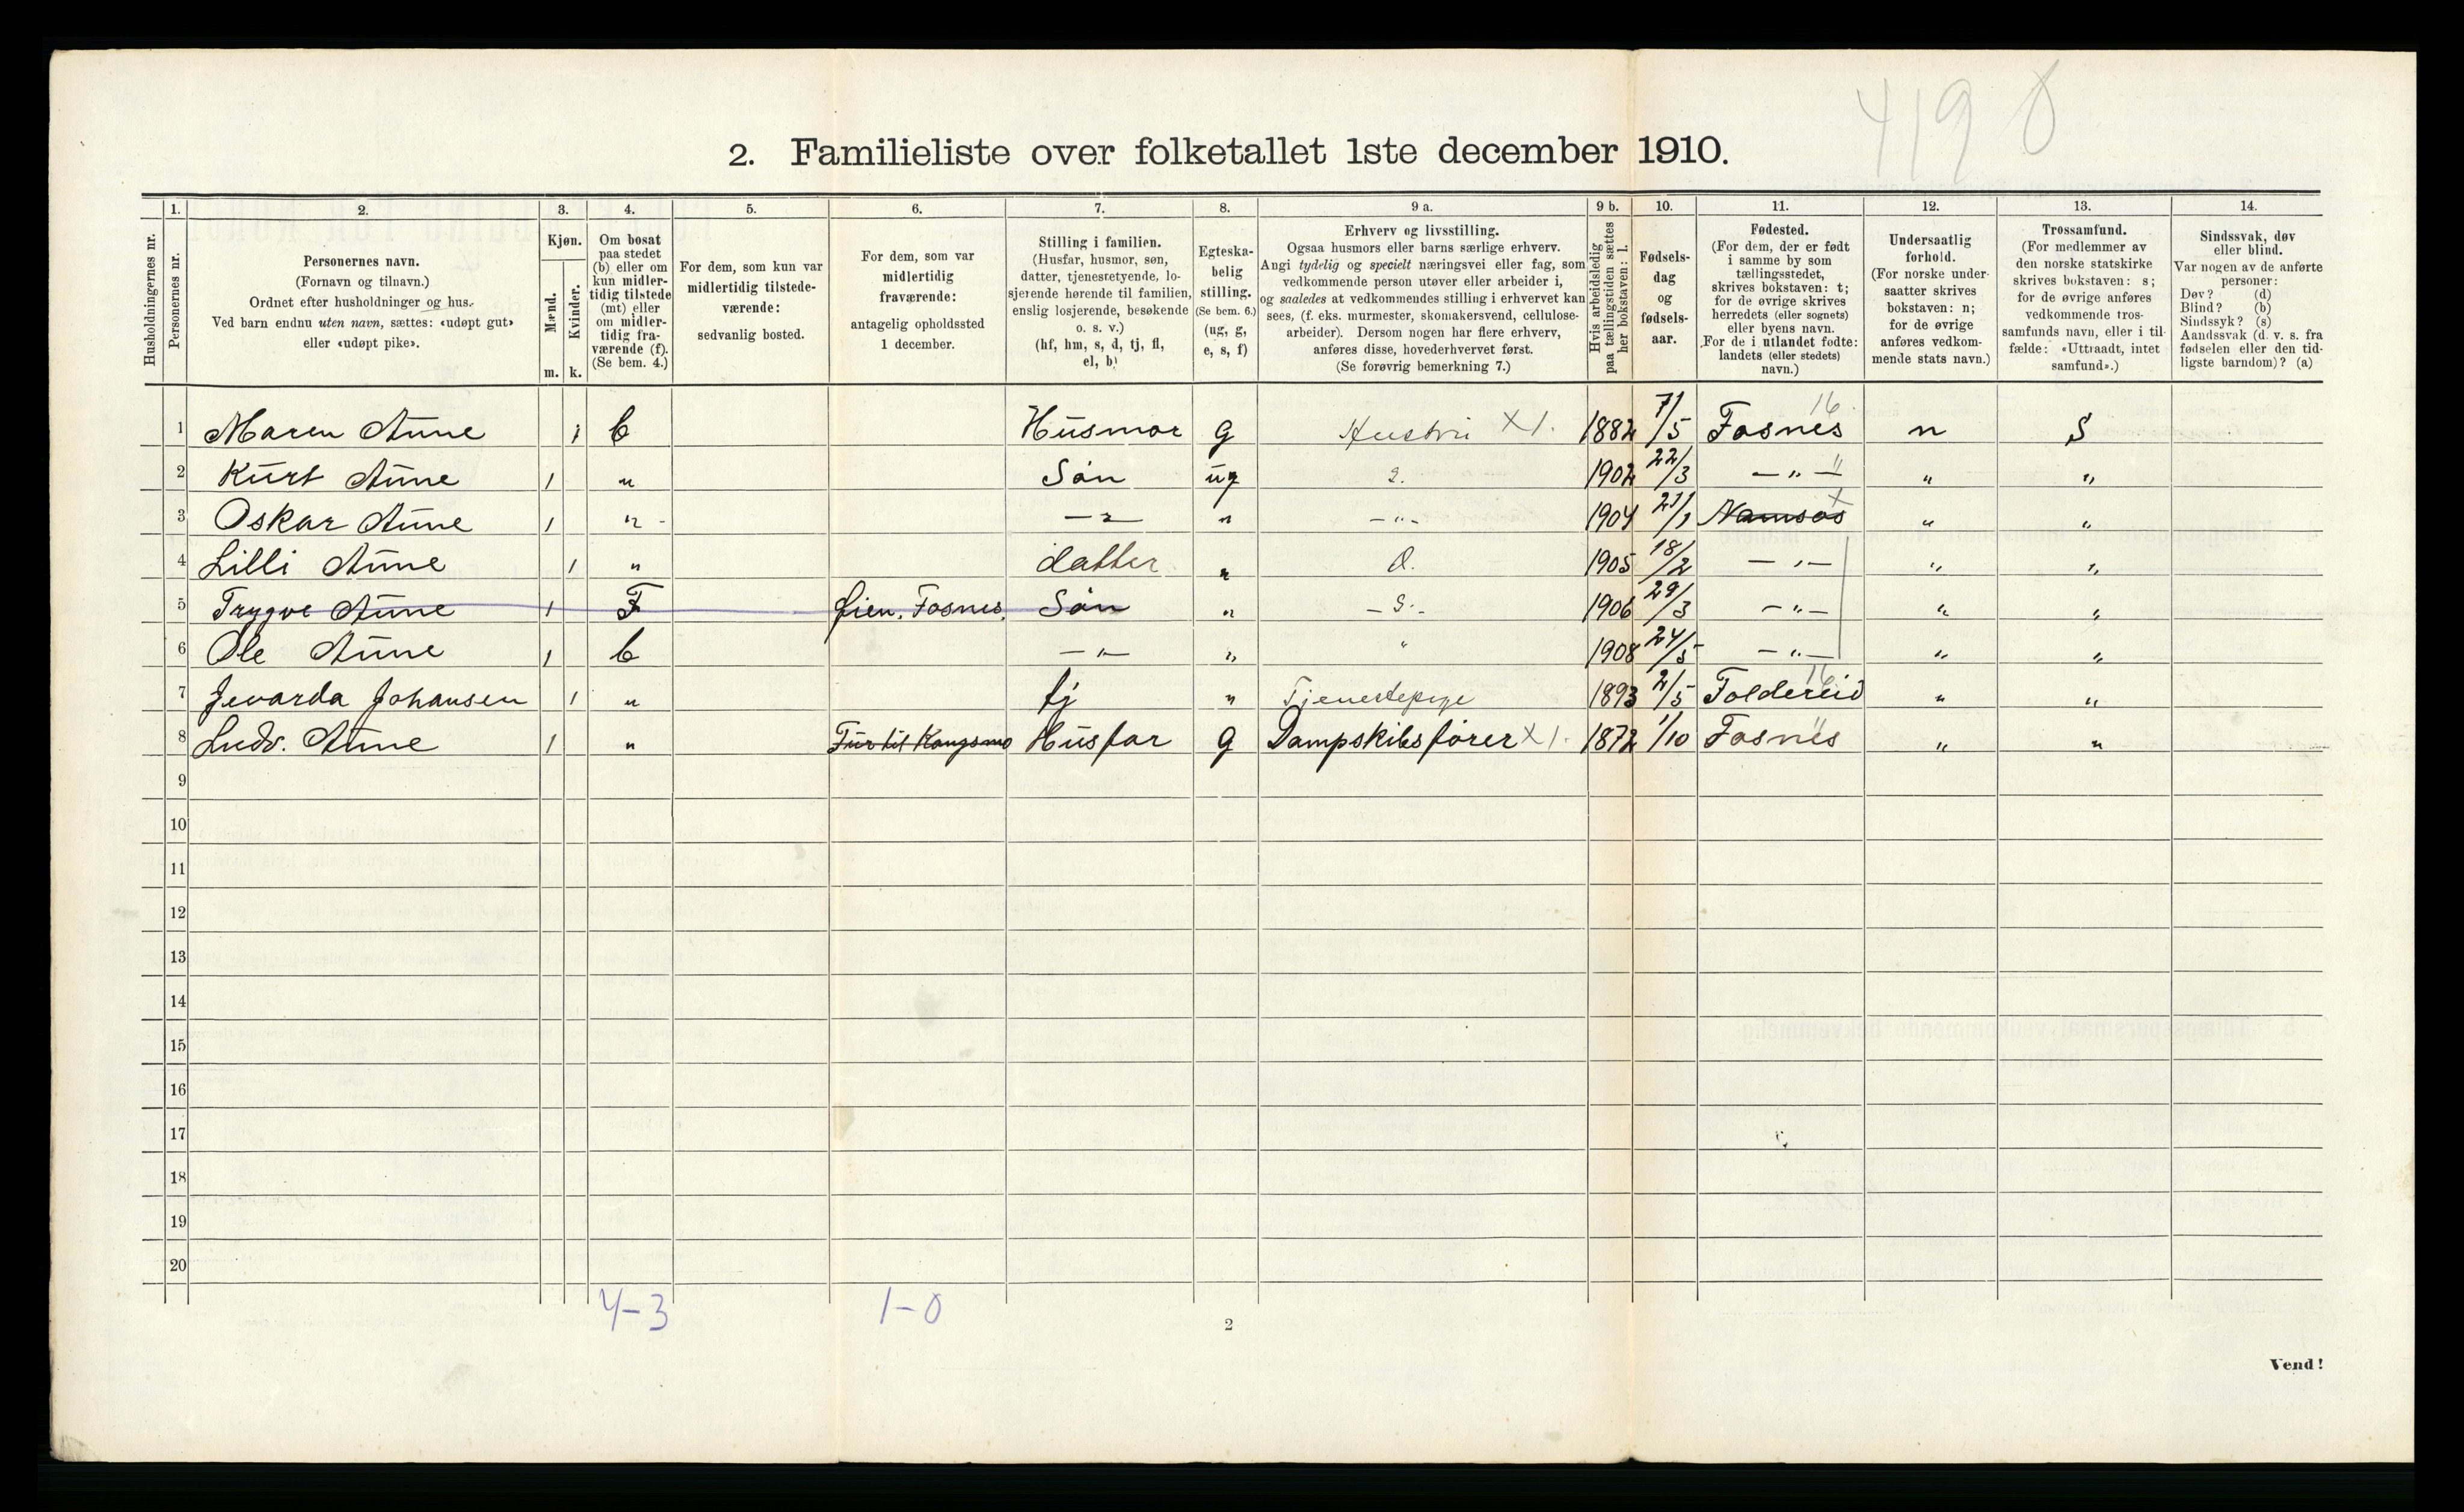 4190
2. Familieliste over folketallet 1ste december 1910.
Husholdningernes nr.
1. Personernes nr.
2. Personernes navn.
(Fornavn og tilnavn.)
Ordnet efter husholdninger og hus.
Ved barn endnu uten navn, sættes: «udøpt gut»
eller «udøpt pike».
3. Kjøn.
Mænd. m.
Kvinder. k.
4. Om bosat
paa stedet
(b) eller om
kun midler-
tidig tilstede
(mt) eller
om midler-
tidig fra-
værende (f).
(Se bem. 4.)
5. For dem, som kun var
midlertidig tilstede-
værende:
sedvanlig bosted.
6. For dem, som var
midlertidig
fraværende:
antagelig opholdssted
1 december.
7. Stilling i familien.
(Husfar, husmor, søn,
datter, tjenestetyende, lo-
sjerende hørende til familien,
enslig losjerende, besøkende
o. s. v.)
(hf, hm, s, d, tj, fl,
el, b)
8. Egteska-
belig
stilling.
(Se bem. 6.)
(ug, g,
e, s, f)
9 a. Erhverv og livsstilling.
Ogsaa husmors eller barns særlige erhverv.
Angi tydelig og specielt næringsvei eller fag, som
vedkommende person utøver eller arbeider i,
og saaledes at vedkommendes stilling i erhvervet kan
sees, (f. eks. murmester, skomakersvend, cellulose-
arbeider). Dersom nogen har flere erhverv,
anføres disse, hovederhvervet først.
(Se forøvrig bemerkning 7.)
9 b. Hvis arbeidsledig
paa tællingstiden sættes
her bokstaven: l.
10. Fødsels-
dag
og
fødsels-
aar.
11. Fødested.
(For dem, der er født
i samme by som
tællingsstedet,
skrives bokstaven: t;
for de øvrige skrives
herredets (eller sognets)
eller byens navn.
For de i utlandet fødte:
landets (eller stedets)
navn.)
12. Undersaatlig
forhold.
(For norske under-
saatter skrives
bokstaven: n;
for de øvrige
anføres vedkom-
mende stats navn.)
13. Trossamfund.
(For medlemmer av
den norske statskirke
skrives bokstaven: s;
for de øvrige anføres
vedkommende tros-
samfunds navn, eller i til-
fælde: «Uttraadt, intet
samfund».)
14. Sindssvak, døv
eller blind.
Var nogen av de anførte
personer:
Døv? (d)
Blind? (b)
Sindssyk? (s)
Aandssvak (d. v. s. fra
fødselen eller den tid-
ligste barndom)? (a)
1 Maren Aune 1 b Husmor g Hustru X1. 1882 7/5 Fosnes 16 n S
2 Kurt Aune 1 " Søn ug 1902 22/3 — " — " " "
3 Oskar Aune 1 " — " — " — " — 1904 21/1 Namsos X " "
4 Lilli Aune 1 " datter " d. 1905 18/2 — " — " "
5 Trygve Aune 1 F Øien, Fosnes. Søn " — S. — 1906 29/3 — " — " "
6 Ole Aune 1 b — " — " " 1908 24/5 — " — " "
7 Jevarda Johansen 1 " tj " Tjenestepige 1893 2/5 Foldereid 16 " "
8 Ludv. Aune 1 " Tur til Kongsmo Husfar g Dampskibsfører X1. 1872 1/10 Fosnes " " "
9
10
11
12
13
14
15
16
17
18
19
20
4-3 1-0
2
Vend!